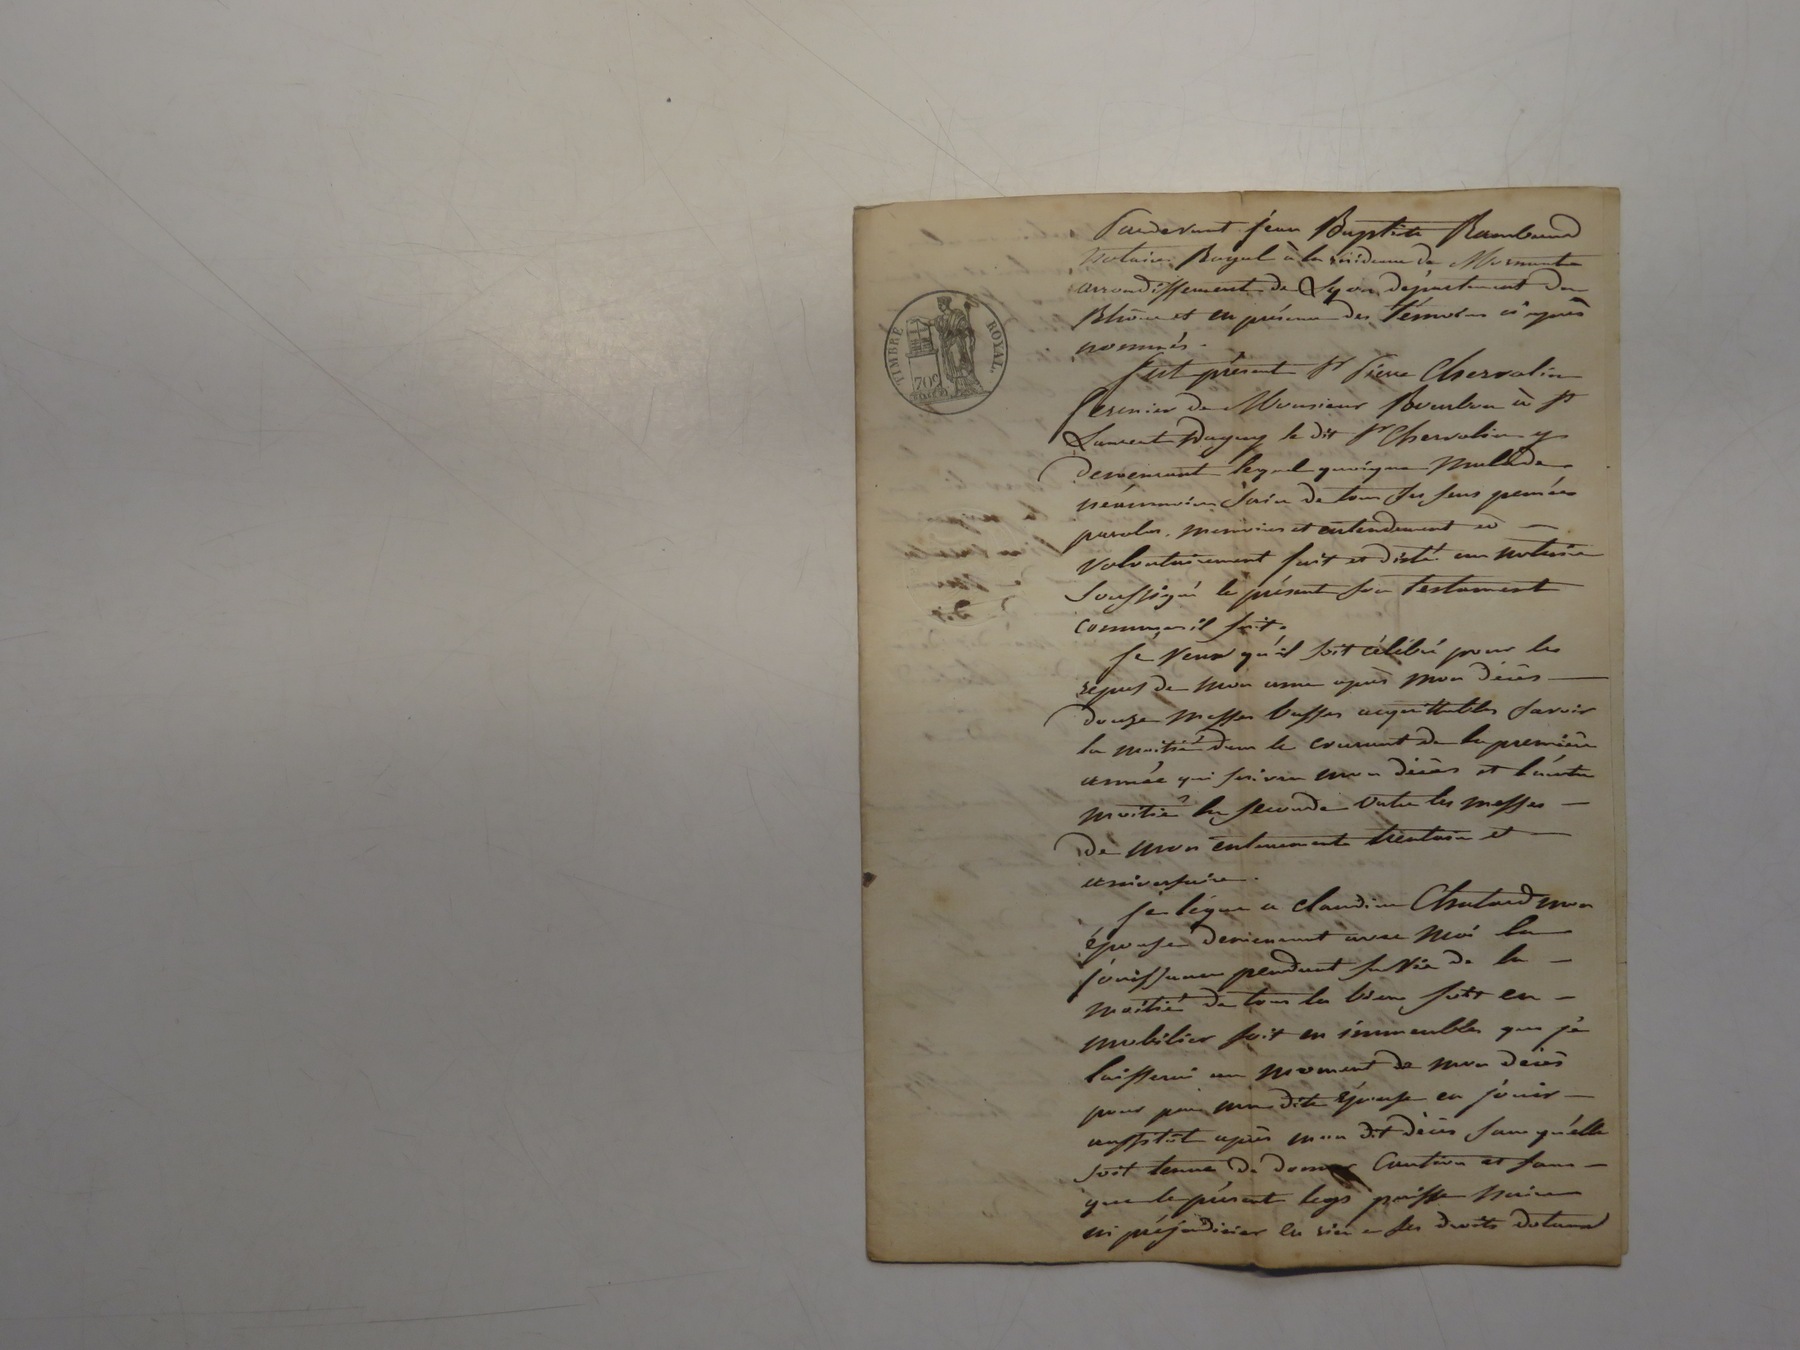 TIMBRE ROYAL.
70c
Pardevant jéan Baptiste Rambaud
notaire Royal à la résidence de Mornant
arrondissement de Lyon département du
Rhône et en présence des témoins ci après
nommés.
fut présent Sr Pierre Chervolin
fermier de Monsieur Bourbon à St
Laurent Dagny le dit Sr Chervolin y
demeurant lequel quoique malade
néanmoins sain de tous ses sens pensées
paroles, memoires et entendement à
volontairement fait et dicté au notaire
soussigné le présent son testament
comme il suit.
Je veux qu'il soit célébré pour le
repos de mon ame après mon décès
douze messes basses acquittables savoir
la moitié dans le courant de la première
année qui suivra mon décès et l'autre
moitié la seconde outre les messes
de mon enterrement trentain et
aniversaire.
Jé légue a claudine Chatard mon
épouse demeurant avec moi la
jouissance pendant sa vie de la
moitié de tous les biens soit en
mobilier soit en immeubles que jé
laisserai au moment de mon décès
pour par ma dite épouse en jouir
aussitôt après mon dit décès sans qu'elle
soit tenue de donner caution et sans
que le présent legs puisse nuire
ni préjudicier en rien a ses droits dotaux